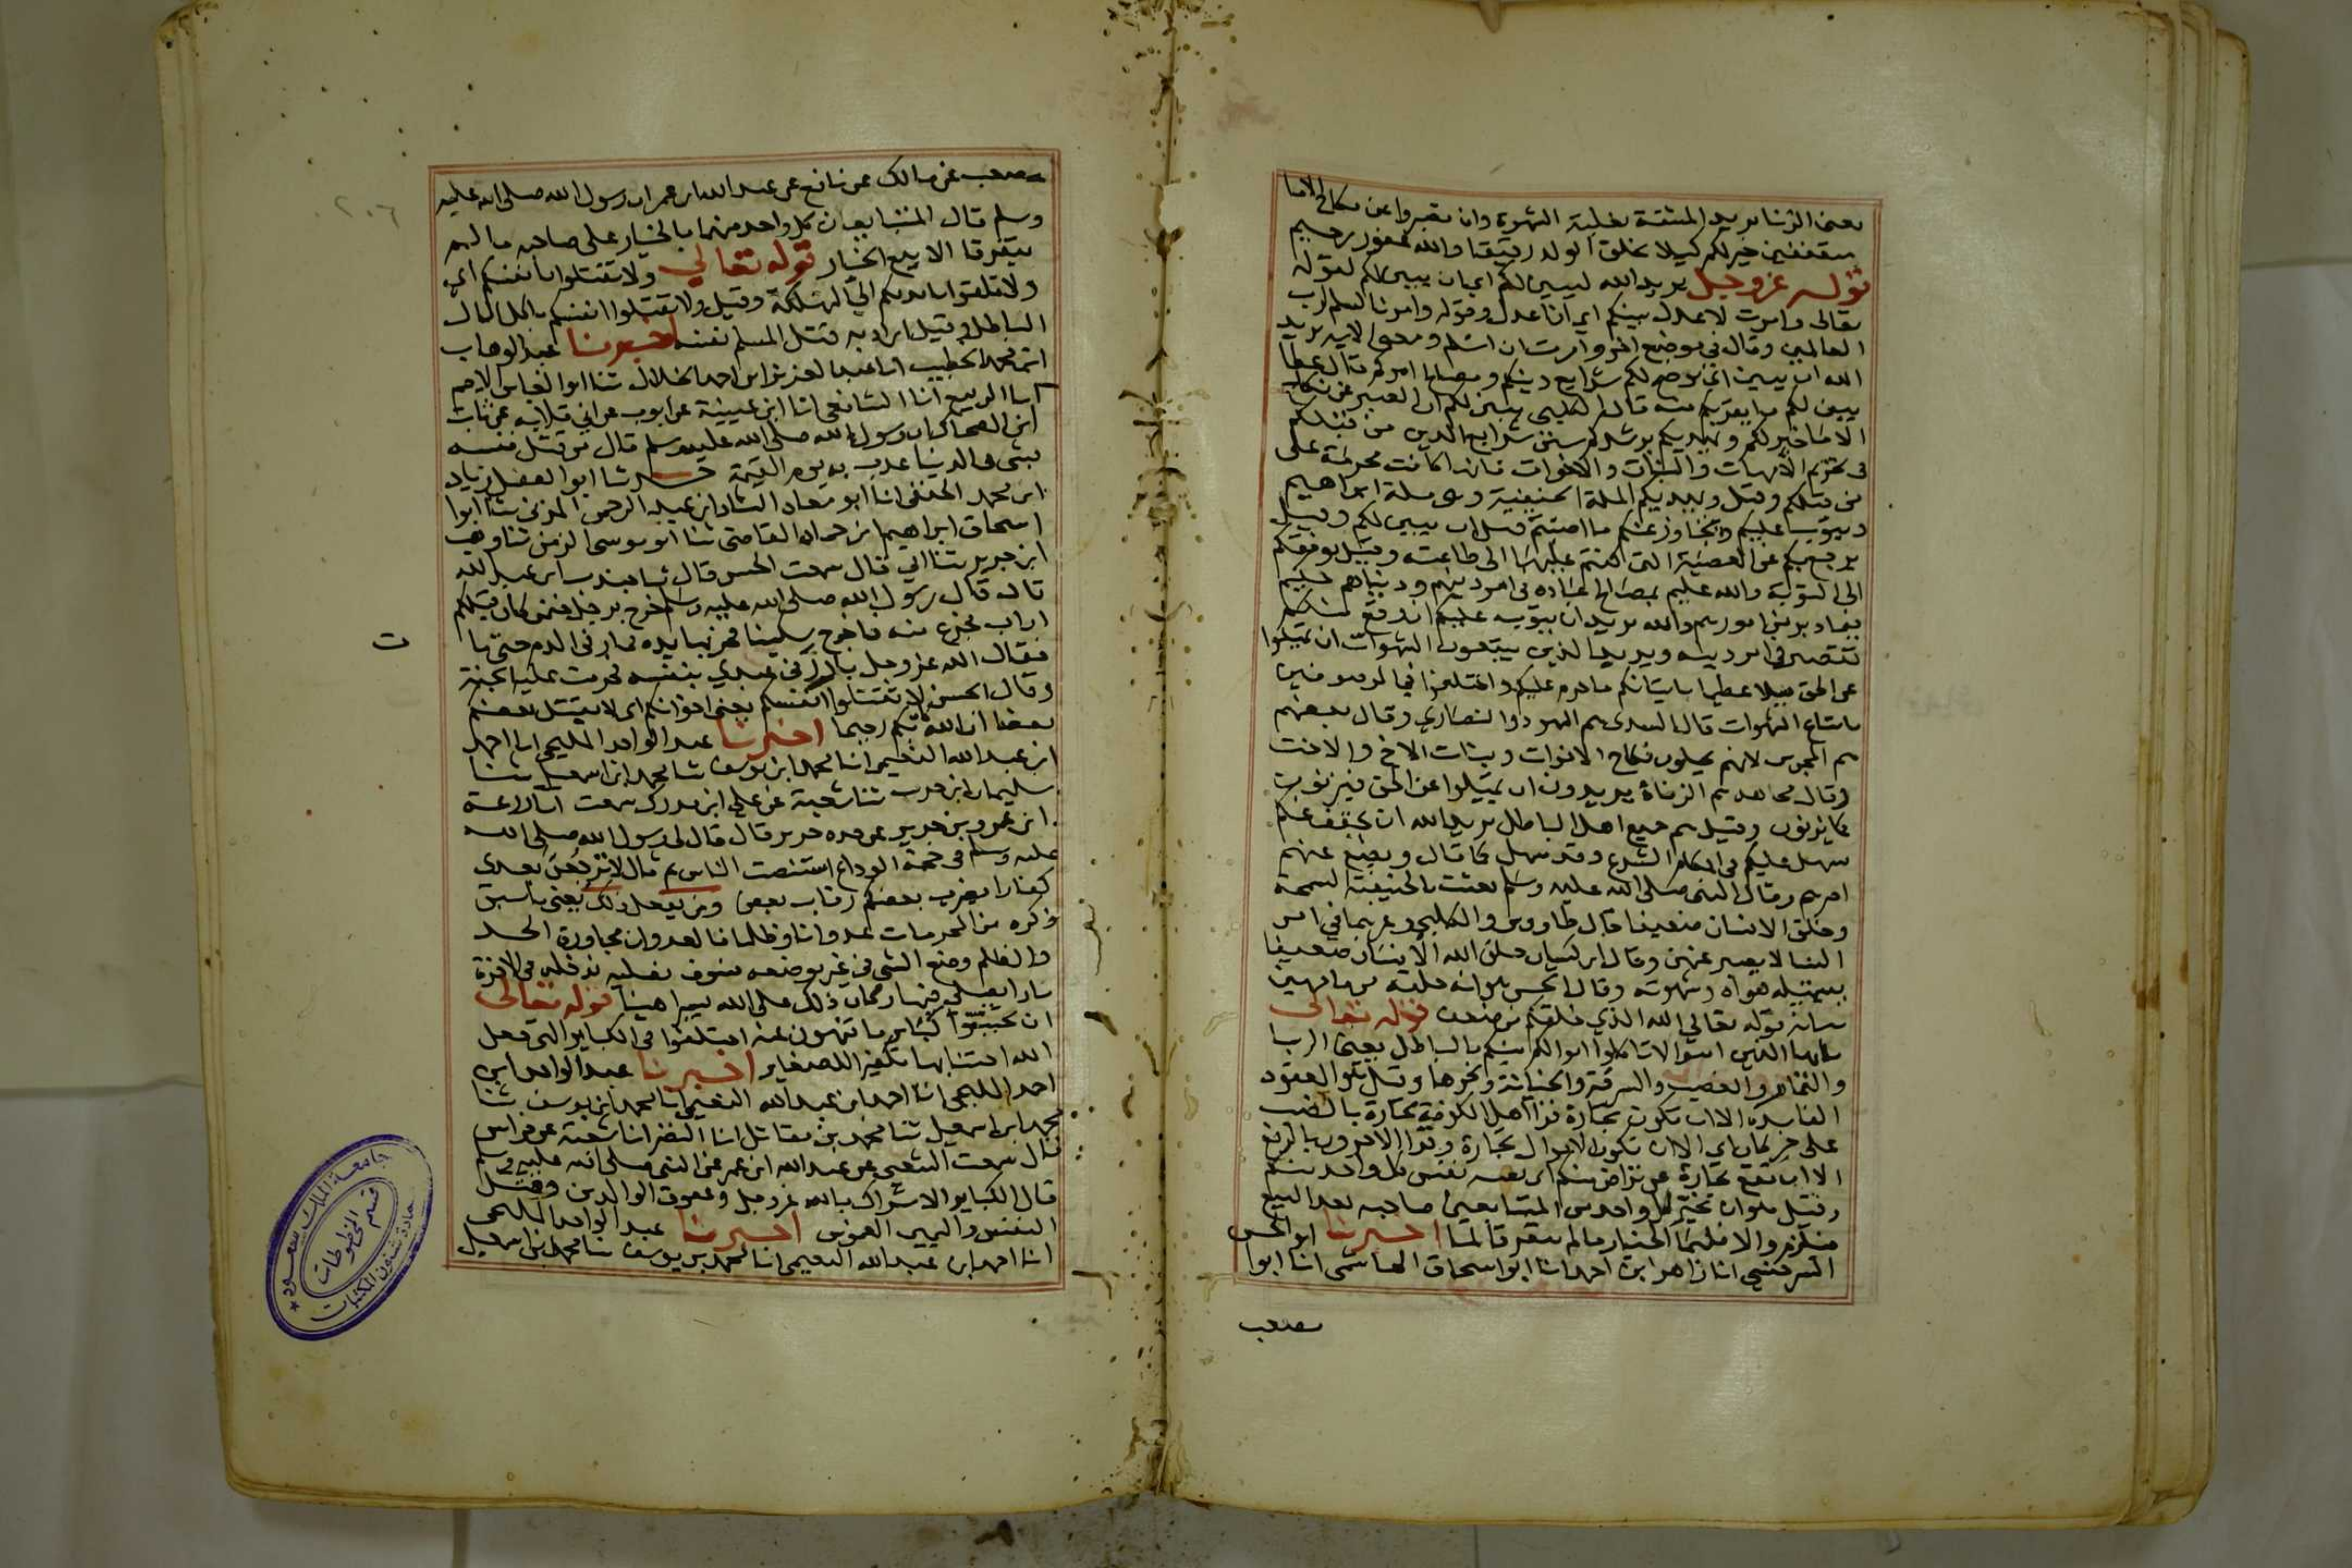 يعني الزنا يريد المشقة بغلبة الشهوة وان تصبروا عن نكاح الاما
متعففين خير لكم كيلا يخلق الولد رقيقا والله غفور رحيم
قوله عز وجل يريد الله ليبين لكم اي ان يبين لكم لقوله
تعالى وامرت لاعدل بينكم اي ان اعدل وقوله وامرنا لنسلم لرب
العالمين وقال في موضع اخر وامرت ان اسلم ومعنى الاية يريد
الله ان يبين اي يوضح لكم شرايع دينكم ومصالح امركم قال عطا
يبين لكم ما يقربكم منه قال الكلبي يبين لكم ان الصبر عن نكاح
الاما خير لكم ويهديكم يرشدكم سنن شرايع الذين من قبلكم
في تحريم الامهات والبنات والاخوات فانها كانت محرمة على
من قبلكم وقيل ويهديكم الملة الحنيفية وهي ملة ابراهيم
ويتوب عليكم ويتجاوز عنكم ما اصبتم قبل ان يبين لكم وقيل
يرجع بكم عن المعصية التي كنتم عليها الى طاعته وقيل يوفقكم
الى التوبة والله عليم بمصالح عباده في امر دينهم ودنياهم حكيم
فيما دبر من امورهم والله يريد ان يتوب عليكم ان وقع منكم
تقصير في امر دينه ويريد الذين يتبعون الشهوات ان تميلوا
عن الحق ميلا عظيما باتيانكم ما حرم عليكم واختلفوا في الموصوفين
باتباع الشهوات قال السدي هم اليهود والنصارى وقال بعضهم
هم المجوس لانهم يحلون نكاح الاخوات وبنات الاخ والاخت
وقال مجاهد هم الزناة يريدون ان تميلوا عن الحق فتزنون
كما يزنون وقيل هم جميع اهل الباطل يريد الله ان يخفف عنكم
سهل عليكم في احكام الشرع وقد سهل كما قال ويضع عنهم
اصرهم وقال النبي صلى الله عليه وسلم بعثت بالحنيفية السمحة
وخلق الانسان ضعيفا قال طاووس والكلبي وغيرهما في امر
النسا لا يصبر عنهن وقال ابن كيسان خلق الله الانسان ضعيفا
يستميله هواه وشهوته وقال الحسن هو انه خلقه من ما مهين
بيانه قوله تعالى الله الذي خلقكم من ضعف قوله تعالى
يا ايها الذين امنوا لا تاكلوا اموالكم بينكم بالباطل يعني الربا
والقمار والغصب والسرقة والخيانة ونحوها وقيل هو العقود
الفاسدة الا ان تكون تجارة قرا اهل الكوفة تجارة بالنصب
على خبر كان اي الا ان تكون الاموال تجارة وقرا الاخرون بالرفع
الا ان تقع تجارة عن تراض منكم اي بطيبة نفس كل واحد منكم
وقيل هو ان يخير كل واحد من المتبايعين صاحبه بعد البيع
فيلزم والا فلهما الخيار ما لم يتفرقا لما اخبرنا ابو الحسن
السرخسي انا زاهر ابن احمد انا ابو اسحاق الهاشمي انا ابوا
مصعب
مصعب عن مالك عن نافع عن عبد الله بن عمر ان رسول الله صلى الله عليه
وسلم قال المتبايعان كل واحد منهما بالخيار على صاحبه ما لم
يتفرقا الا بيع الخيار قوله تعالى ولا تقتلوا انفسكم اي
ولا تلقوا بايديكم الى التهلكة وقيل ولا تقتلوا انفسكم باكل المال
الباطل وقيل اراد به قتل المسلم نفسه اخبرنا عبد الوهاب
ابن محمد الخطيب انا عبد العزيز ابن احمد الخلال ثنا ابوا العباس الاصم
انا الربيع انا الشافعي انا ابن عيينة عن ايوب عن ابي قلابة عن ثابت
ابن الضحاك ان رسول الله صلى الله عليه وسلم قال من قتل نفسه
بشي في الدنيا عذب به يوم القيمة حدثنا ابو الفضل زياد
ابن محمد الحنفي انا ابو معاذ الشاه ابن عبد الرحمن المزني ثنا ابوا
اسحاق ابراهيم ابن حماد القاضي ثنا ابو موسى الزمن ثنا وهب
ابن جرير ثنا ابي قال سمعت الحسن قال ثنا جندب ابن عبد الله
قال قال رسول الله صلى الله عليه وسلم خرج برجل فيمن كان قبلكم
اراب فجزع منه فاخرج سكينا فحز بها يده فما رقى الدم حتى مات
فقال الله عز وجل بادرني عبدي بنفسه فحرمت عليه الجنة
وقال الحسن لا تقتلوا انفسكم يعني اخوانكم اي لا يقتل بعضكم
بعضا ان الله كان بكم رحيما اخبرنا عبد الواحد المليحي انا احمد
ابن عبد الله النعيمي انا محمد ابن يوسف ثنا محمد ابن اسمعيل ثنا
سليمان ابن حرب ثنا شعبة عن علي ابن مدرك سمعت ابا زرعة
ابن عمرو بن جرير عن جده جرير قال قال لي رسول الله صلى الله
عليه وسلم في حجة الوداع استنصت الناس ثم قال لا ترجعن بعدي
كفارا يضرب بعضكم رقاب بعض ومن يفعل ذلك يعني ما سبق
ذكره من المحرمات عدوانا وظلما فالعدوان مجاوزة الحد
والظلم وضع الشي في غير موضعه فسوف نصليه ندخله في الاخرة
نارا يصلى فيها وكان ذلك على الله يسيرا هينا قوله تعالى
ان تجتنبوا كباير ما تنهون عنه اختلفوا في الكباير التي جعل
الله اجتنابها تكفيرا للصغاير اخبرنا عبد الواحد ابن
احمد المليحي انا احمد ابن عبد الله النعيمي انا محمد ابن يوسف ثنا
محمد ابن اسمعيل ثنا محمد بن مقاتل انا النضر انا شعبة عن فراس
قال سمعت الشعبي عن عبد الله ابن عمر عن النبي صلى الله عليه وسلم
قال الكباير الاشراك بالله عز وجل وعقوق الوالدين وقتل
النفس واليمين الغموس اخبرنا عبد الواحد المليحي
انا احمد ابن عبد الله النعيمي انا محمد بن يوسف ثنا محمد ابن اسمعيل
ت
٢٠٦
جامعة الملك سعود
قسم المخطوطات
عمادة شئون المكتبات